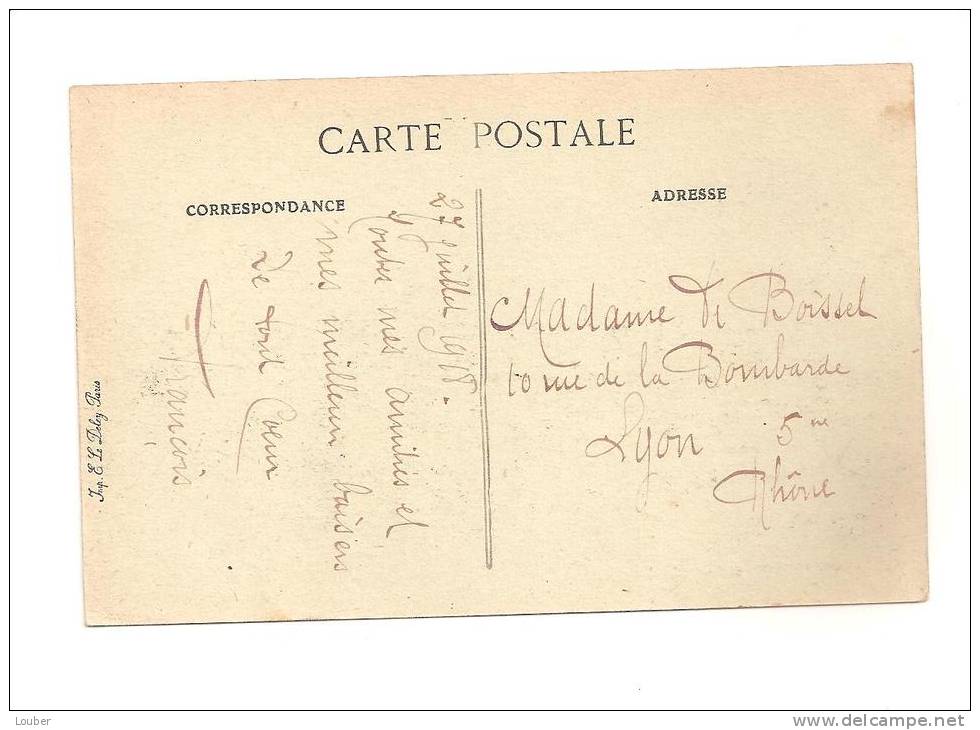 CARTE POSTALE
CORRESPONDANCE
ADRESSE
27 juillet 1918.
Toutes mes amitiés et
mes meilleurs baisers
De tout Coeur
François
Madame de Boissel
10 rue de la Bombarde
Lyon 5me
Rhône
Imp. E. Le Deley Paris
Louber
www.delcampe.net